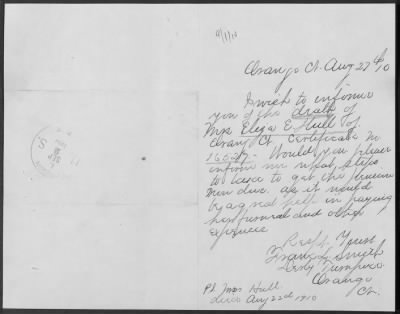 Orange Ct. Aug 27th/10
I wish to informe
you of the death of
Mrs Eliza E. Hull of
Orange Ct. Certificate No
Would you please
inform me what steps
to take to get the pension
now due. As it would
be a great help in paying
her funeral and other
expences
Respt. Yours
Frank Smith
Orange
Ct.
P.S. Mrs Hull
died Aug 22nd 1910